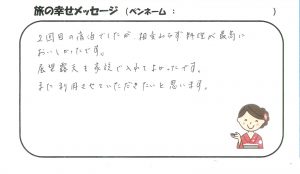 旅の幸せメッセージ（ペンネーム：　　　）
2回目の宿泊でしたが相変わらず料理が最高に
おいしかったです。
展望露天も家族で入れてよかったです。
また利用させていただきたいと思います。